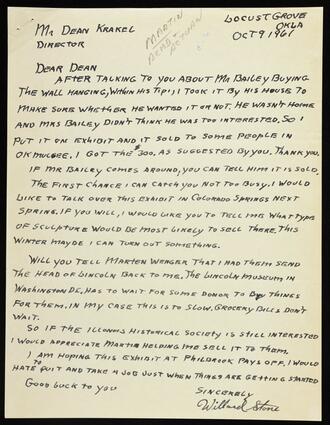 MR DEAN KRAKEL
DIRECTOR
LOCUST GROVE
OKLA
OCT 9 1961
MARTIN
READ &
RETURN
DEAR DEAN
AFTER TALKING TO YOU ABOUT MR BAILEY BUYING
THE WALL HANGING, WITHIN HIS TIPI, I TOOK IT BY HIS HOUSE TO
MAKE SURE WHETHER HE WANTED IT OR NOT. HE WASN'T HOME
AND MRS BAILEY DIDN'T THINK HE WAS TOO INTERESTED. SO I
PUT IT ON EXHIBIT AND IT SOLD TO SOME PEOPLE IN
OKMULGEE. I GOT THE $300. AS SUGGESTED BY YOU. THANK YOU.
IF MR BAILEY COMES AROUND, YOU CAN TELL HIM IT IS SOLD.
THE FIRST CHANCE I CAN CATCH YOU NOT TOO BUSY, I WOULD
LIKE TO TALK OVER THIS EXHIBIT IN COLORADO SPRINGS NEXT
SPRING. IF YOU WILL, I WOULD LIKE YOU TO TELL ME WHAT TYPES
OF SCULPTURE WOULD BE MOST LIKELY TO SELL THERE. THIS
WINTER MAYBE I CAN TURN OUT SOMETHING.
WILL YOU TELL MARTEN WENGER THAT I HAD THEM SEND
THE HEAD OF LINCOLN BACK TO ME. THE LINCOLN MUSEUM IN
WASHINGTON DC, HAS TO WAIT FOR SOME DONOR TO BUY THINGS
FOR THEM. IN MY CASE THIS IS TO SLOW. GROCERY BILLS DON'T
WAIT.
SO IF THE ILLINOIS HISTORICAL SOCIETY IS STILL INTERESTED
I WOULD APPRECIATE MARTIN HELPING ME SELL IT TO THEM.
I AM HOPING THIS EXHIBIT AT PHILBROOK PAYS OFF. I WOULD
HATE TO QUIT AND TAKE A JOB JUST WHEN THINGS ARE GETTING STARTED
GOOD LUCK TO YOU
SINCERELY
Willard Stone